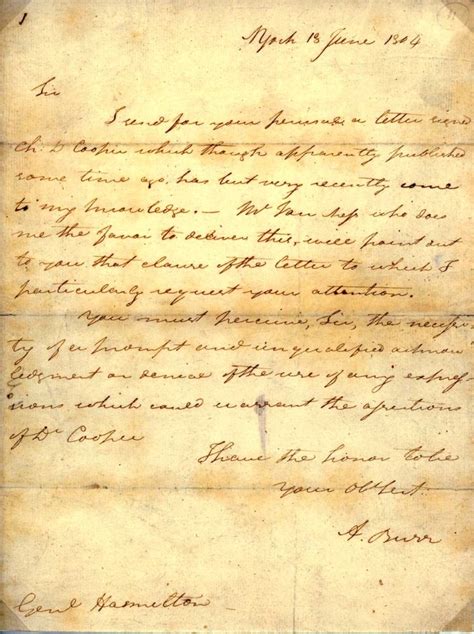 1
NYork 18 June 1804
Sir
I send for your perusal a letter signed
Ch. D Cooper which though apparently published
some time ago, has but very recently come
to my knowledge. — Mr Van Ness who does
me the favor to deliver this, will point out
to you that clause of the letter to which I
particularly request your attention.
You must perceive, Sir, the necessi
ty of a prompt and unqualified acknow
ledgment or denial of the use of any expres
sions which could warrant the assertions
of Dr Cooper
I have the honor to be
Your Ob! Sert
A. Burr
Genl Hamilton